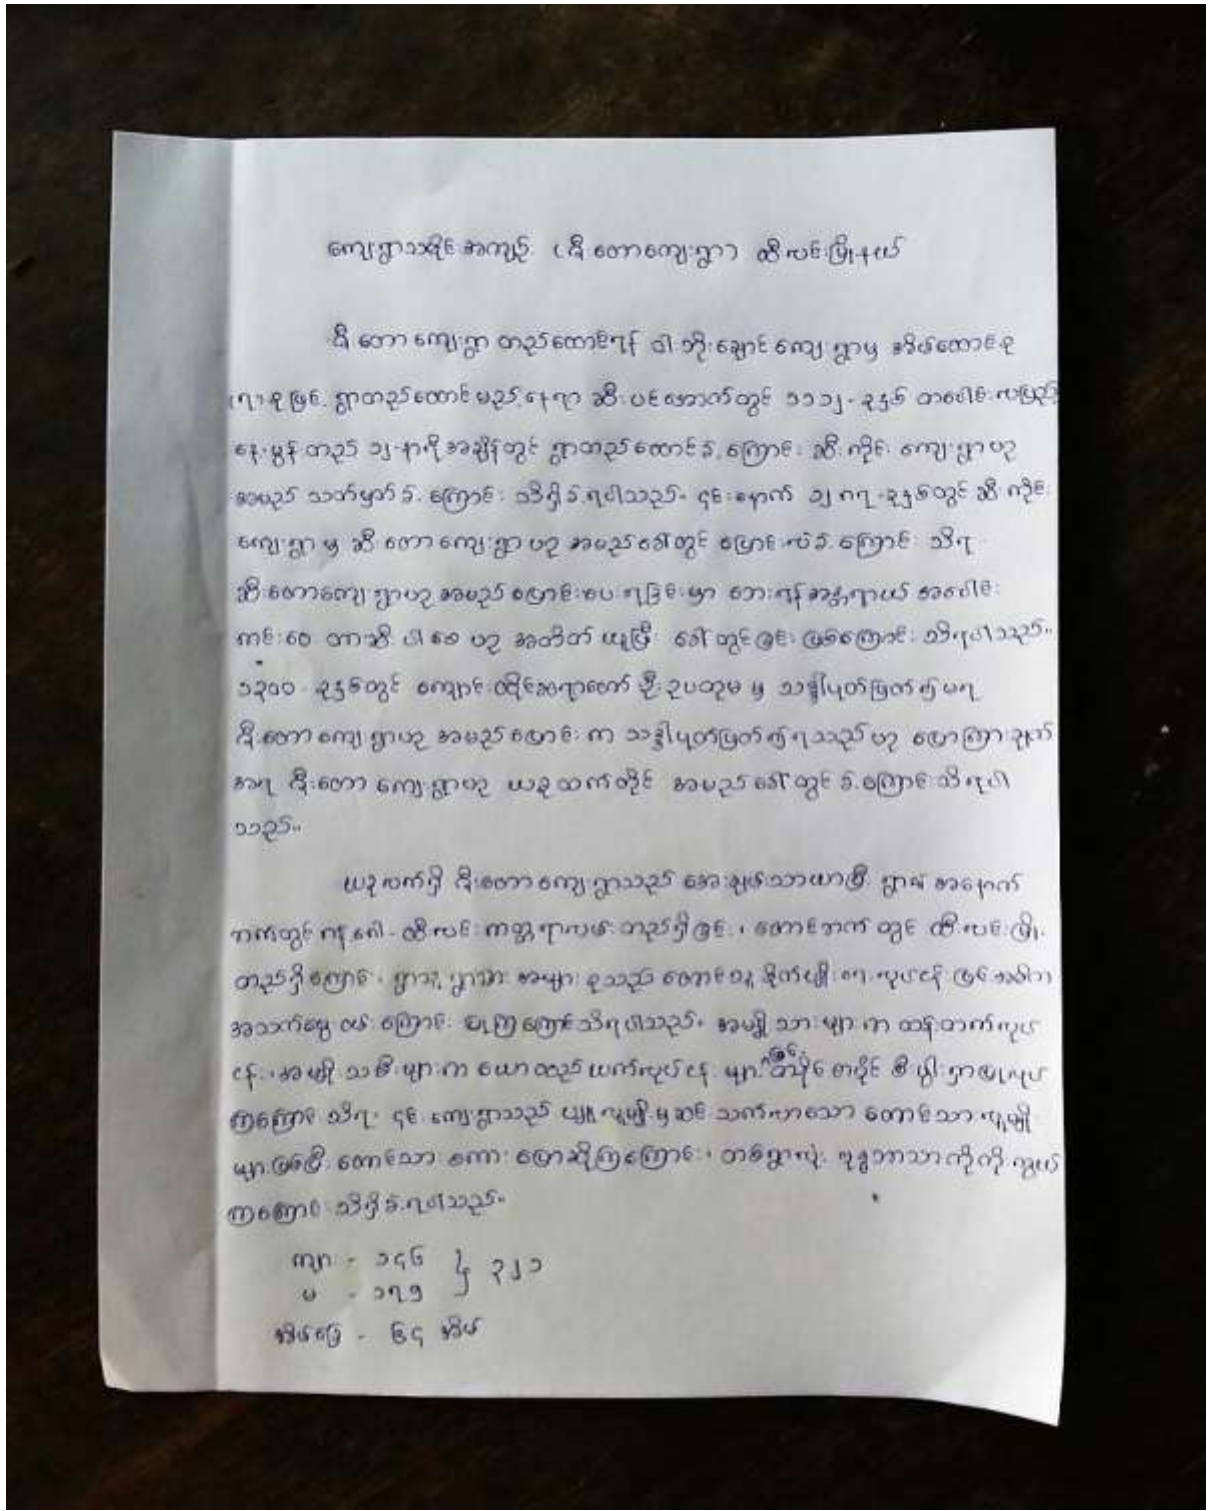 ကျေးရွာသမိုင်းအကျဉ်း (ငှီးတောကျေးရွာ) ထီးလင်းမြို့နယ်
ငှီးတောကျေးရွာ တည်ထောင်ရန် ဝါဘိုးချောင်ကျေးရွာမှ အိမ်ထောင်စု
(၇) စုဖြင့် ရွာတည်ထောင်မည့်နေရာ ဆီးပင်အောက်တွင် ၁၁၁၂-ခုနှစ် တပေါင်းလပြည့်
နေ့မွန်းတည် ၁၂-နာရီအချိန်တွင် ရွာတည်ထောင်ခဲ့ကြောင်း ဆီးကိုင်းကျေးရွာဟု
အမည်သတ်မှတ်ခဲ့ကြောင်း သိရှိခဲ့ရပါသည်။ ၎င်းနောက် ၁၂၈၇-ခုနှစ်တွင် ဆီးကိုင်း
ကျေးရွာမှ ဆီးတောကျေးရွာဟု အမည်ခေါ်တွင် ပြောင်းလဲခဲ့ကြောင်း သိရ
ဆီးတောကျေးရွာဟု အမည်ပြောင်းပေးရခြင်းမှာ ဘေးရန်အန္တရာယ် အပေါင်း
ကင်းဝေ တာဆီးပါစေ ဟု အတိတ်ယူပြီး ခေါ်တွင်ခြင်းဖြစ်ကြောင်း သိရပါသည်။
၁၃၀၀ ခုနှစ်တွင် ကျောင်းထိုင်ဆရာတော် ဦးဥပတုမ မှ သဒ္ဒါပုတ်ဖြတ်၍မရ
ငှီးတောကျေးရွာဟု အမည်ပြောင်းက သဒ္ဒါပုတ်ဖြတ်၍ရသည်ဟု ပြောကြားချက်
အရ ငှီးတောကျေးရွာဟု ယခုထက်တိုင် အမည်ခေါ်တွင်ခဲ့ကြောင်း သိရပါ
သည်။
ယခုလက်ရှိ ငှီးတောကျေးရွာသည် အေးချမ်းသာယာပြီး ရွာ၏ အနောက်
ဘက်တွင် ဂန့်ဂေါ-ထီးလင်းကတ္တရာလမ်းတည်ရှိခြင်း၊ တောင်ဘက်တွင် ထီးလင်းမြို့
တည်ရှိကြောင်း၊ ရွာသူ ရွာသား အများစုသည် တောင်သူ စိုက်ပျိုးရေးလုပ်ငန်းဖြင့် အဓိက
အသက်မွေးဝမ်းကြောင်း ပြုကြကြောင်းသိရပါသည်။ အမျိုးသားများက ထန်းတက်လုပ်
ငန်း၊ အမျိုးသမီးများက ယောထည်ယက်လုပ်ငန်းများဖြင့် တပိုင် တပိုင် စီးပွါးရှာဖွေလုပ်
ကြကြောင်း သိရ၊ ၎င်းကျေးရွာသည် ပျူလူမျိုးမှဆင်းသက်လာသော တောင်သာလူမျိုး
များဖြစ်ပြီး တောင်သာစကား ပြောဆိုကြကြောင်း၊ တစ်ရွာလုံး ဗုဒ္ဓဘာသာကိုကိုးကွယ်
ကြကြောင်း သိရှိခဲ့ရပါသည်။
ကျား - ၁၄၆ } ၃၂၁
မ - ၁၇၅
အိမ်ခြေ - ၆၄ အိမ်